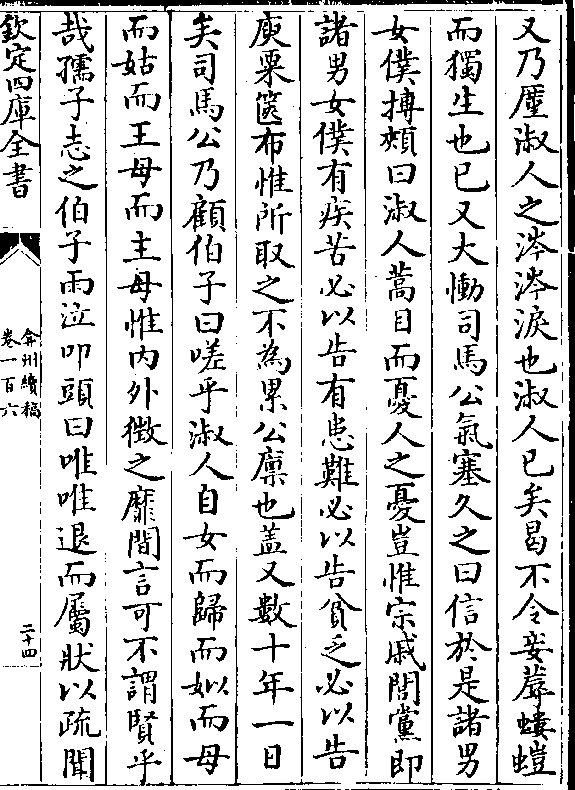 又乃壥淑人之涔涔淚也淑人已矣曷不令妾蓐螻螘
而獨生也已又大慟司馬公氣塞久之曰信於是諸男
女僕搏頰曰淑人蒿目而憂人之憂豈惟宗戚閭黨即
諸男女僕有疾苦必以告有患難必以告貧乏必以告
庾粟篋布惟所取之不為累公廩也蓋又數十年一日
矣司馬公乃顧伯子曰嗟乎淑人自女而歸而姒而母
而姑而王母而主母惟内外徴之靡間言可不謂賢乎
哉孺子志之伯子雨泣叩頭曰唯唯退而屬狀以疏聞
欽定四庫全書
弇州續稿
卷一百六
二十四